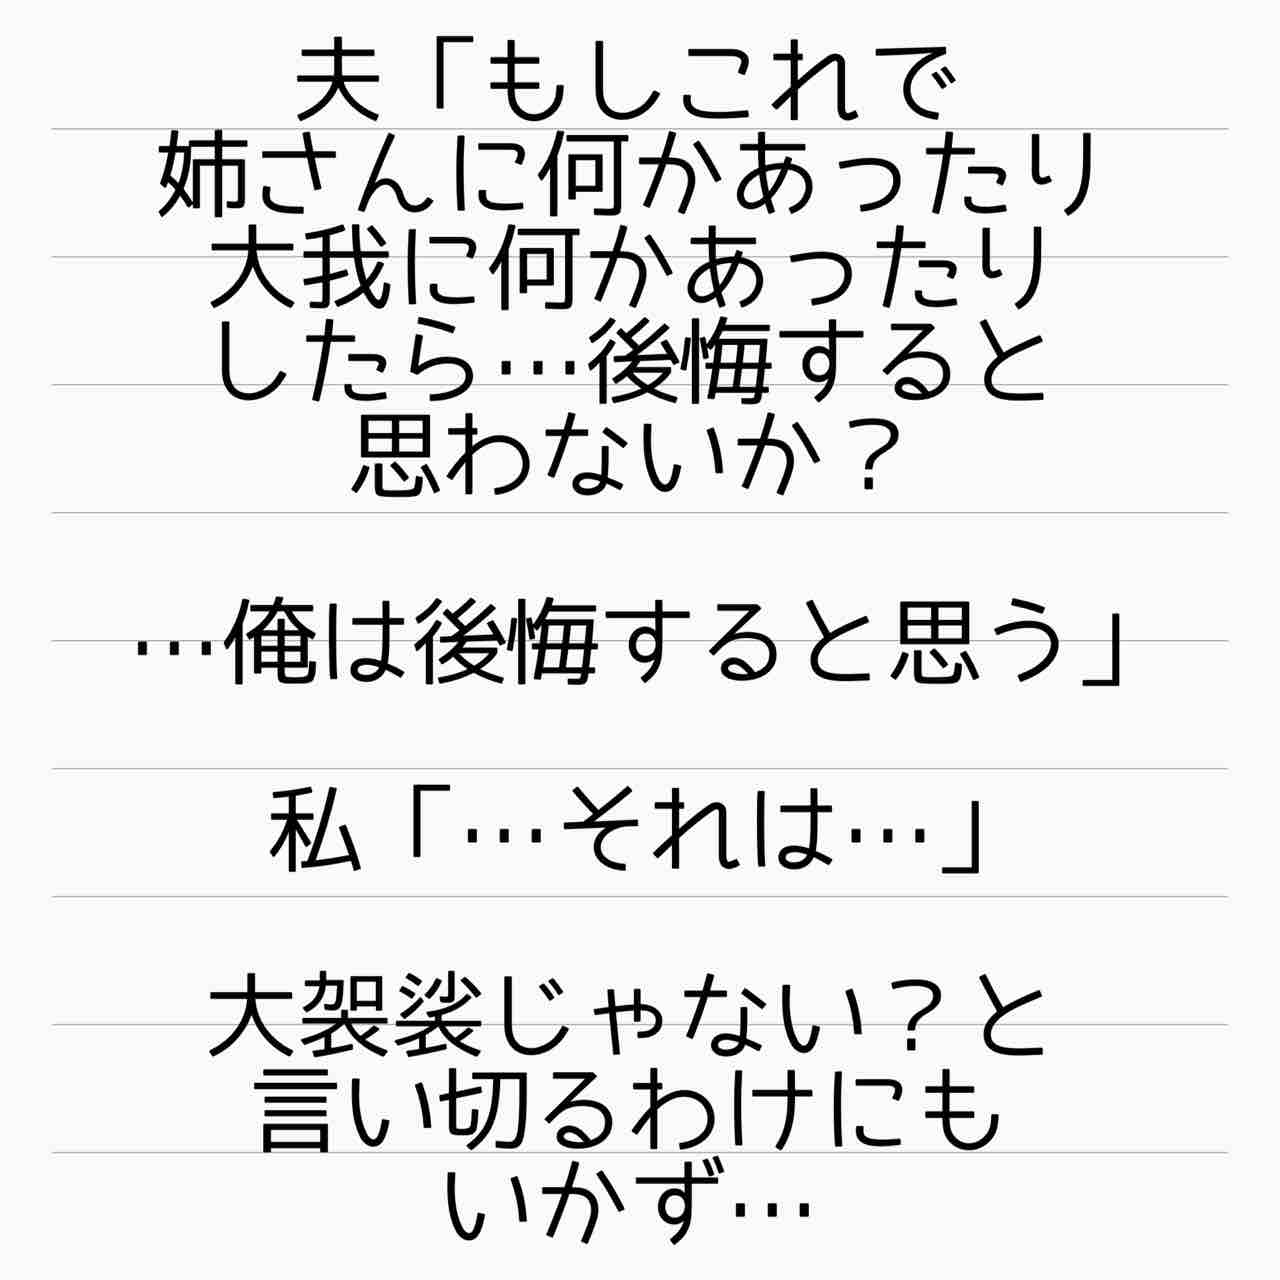 夫「もしこれで
姉さんに何かあったり
大我に何かあったり
したら…後悔すると
思わないか？
…俺は後悔すると思う」
私「…それは…」
大袈裟じゃない？と
言い切るわけにも
いかず…